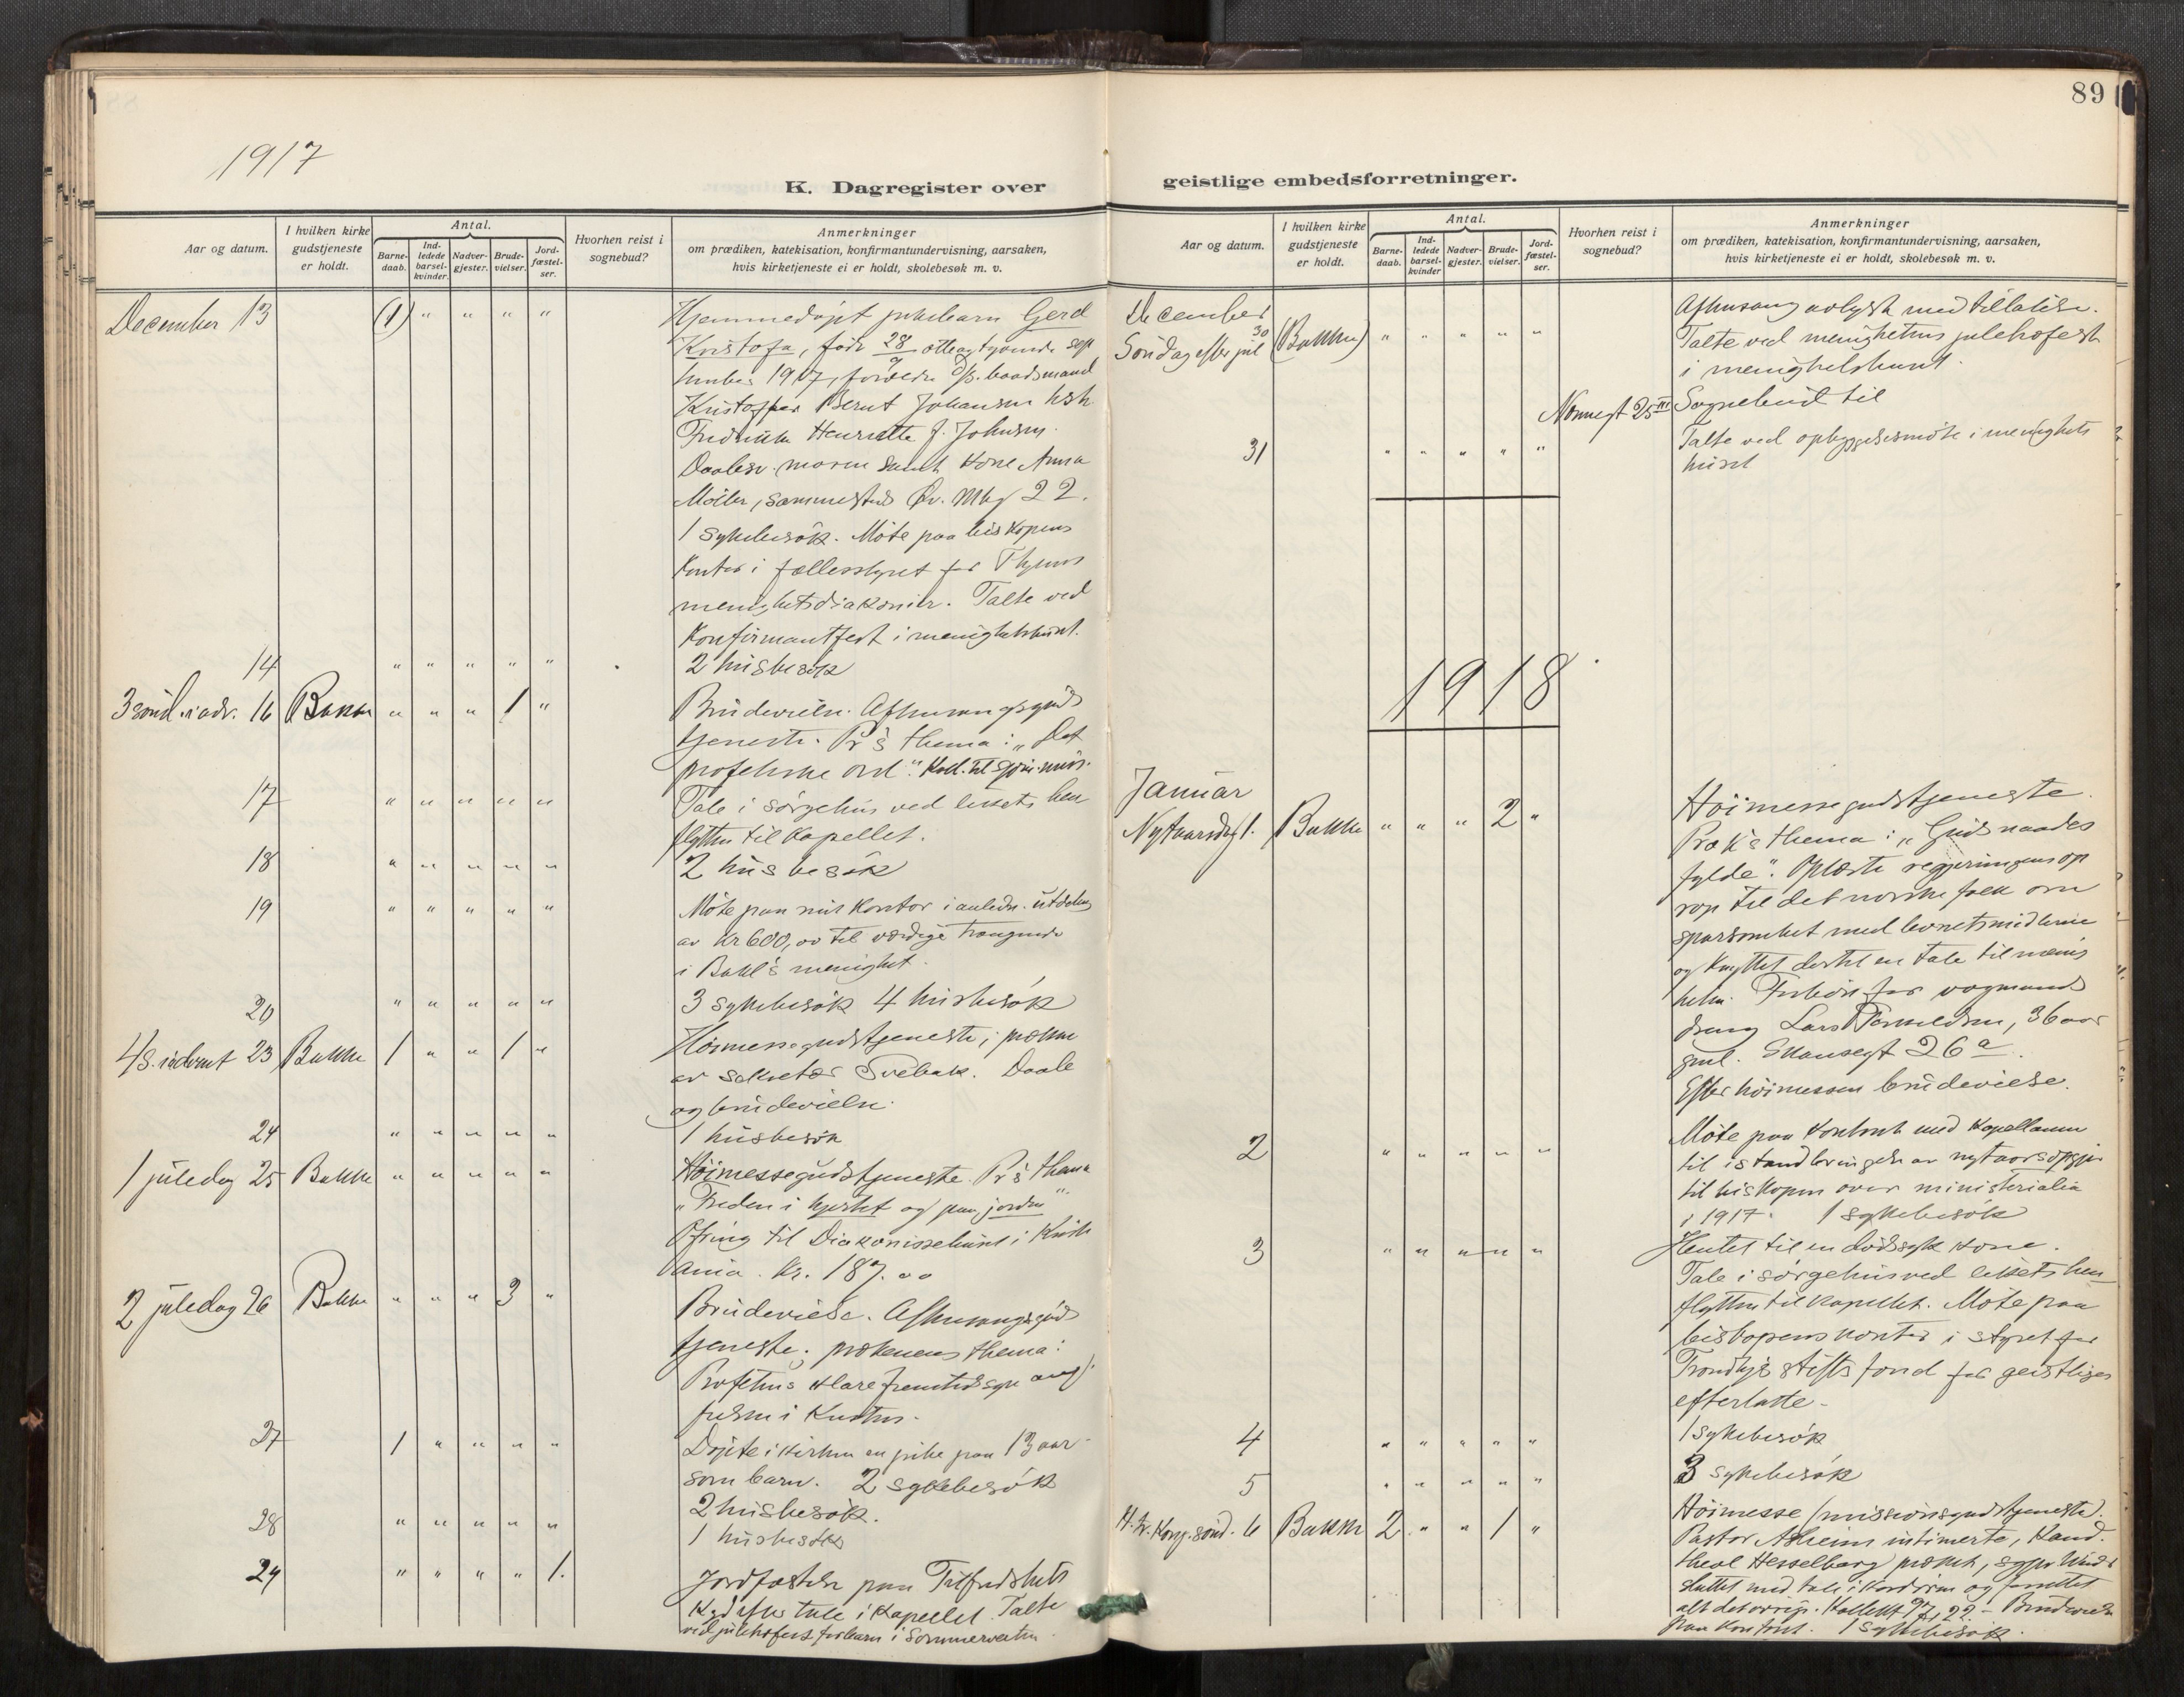 89
1917
K. Dagregister over geistlige embedsforretninger.
Aar og datum.
I hvilken kirke gudstjeneste er holdt.
Antal.
Barne-daab.
Ind-ledede barsel-kvinder
Nadver-gjester.
Brude-vielser.
Jord-fæstel-ser.
Hvorhen reist i sognebud?
Anmerkninger
om prædiken, katekisation, konfirmantundervisning, aarsaken,
hvis kirketjeneste ei er holdt, skolebesøk m. v.
December 13 (1) " " " " Hjemmedøpt pikebarn Gerd
Kristofa, født 28 otteogtyvende sep
tember 1917, forældre
Kristoffer Bernt Johansen
Henriette J. Johnsen.
moren samt Kone Anna
Møller, sammesteds Øv. Mbg 22.
1 sykebesøk. Møte paa biskopens
Kontor i fællesstyret for Thjems
menighetsdiakonier. Talte ved
Konfirmantfest i menighetshuset.
14 " " " " " 2 husbesøk
3 sønd. i adv. 16 Bakke " " " 1 " Brudevielse. Aftensangsguds
tjeneste. Pr's thema: "Det
profetiske ord". Koll. til sjøm.mis.
17 " " " " " Tale i sørgehus ved likets hen
flytten til Kapellet.
18 " " " " " 2 husbesøk
19 " " " " " Møte paa mit Kontor i anledn. utdeling
av kr 600,oo til værdige trængende
i Bakl's menighet.
20 " " " " " 3 sykebesøk 4 husbesøk
4 s. i advent 23 Bakke 1 " " 1 " Høimessegudstjeneste; præken
av sekretær Svebak. Daab
og brudevielse.
24 " " " " " 1 husbesøk
1 juledag 25 Bakke " " " " " Høimessegudstjeneste. Pr's thema
"Freden i hjertet og paa jorden".
Ofring til Diakonissehuset i Kristi
ania. Kr. 187.oo
2 juledag 26 Bakke " " " 3 " Brudevielse. Aftensangsguds
tjeneste; prækenens thema:
Profetens klare fremtidssyn ang.
frelsen i Kristus.
27 1 " " " " Døpte i kirken en pike paa 13 aar
som barn. 2 sykebesøk
2 husbesøk.
28 " " " " " 1 husbesøk
29 " " " " 1. Jordfæstelse paa Tilfredshets
Kgd efter tale i Kapellet. Talte
ved julefest for barn i Sommerveiten.
Aar og datum.
I hvilken kirke gudstjeneste er holdt.
Antal.
Barne-daab.
Ind-ledede barsel-kvinder
Nadver-gjester.
Brude-vielser.
Jord-fæstel-ser.
Hvorhen reist i sognebud?
Anmerkninger
om prædiken, katekisation, konfirmantundervisning, aarsaken,
hvis kirketjeneste ei er holdt, skolebesøk m. v.
December
30
Søndag efter jul (Bakke) " " " " " Aftensang avlyst med tillatelse.
Talte ved menighetens julefest
i menighetshuset.
Nonnegt 25 III Sognebud til
31 " " " " " Talte ved opbyggelsesmøte i menighets
huset
1918
Januar
Nytaarsdag 1. Bakke " " " 2 " Høimessegudstjeneste.
Præk's thema: "Guds naades
fylde". Oplæste regjeringens op
rop til det norske folk om
sparsomhet med levnetsmidlerne
og knyttet dertil en tale til menig
heten. Forbøn for vognmands
dreng Lars 36 aar
gml. Skansegt 26 a.
Efter høimessen brudevielse.
2 " " " " " Møte paa Kontoret med Kapellanen
til istandbringelse av nytaarsopgjør
til biskopen over ministerialia
i 1917. 1 sykebesøk
3 " " " " " Hentet til en dødssyk kone.
Tale i sørgehus ved likets hen
flytten til Kapellet. Møte paa
biskopens kontor i styret for
Trondhj's stifts fond for geistliges
efterlatte.
4 " " " " " 1 sykebesøk
5 " " " " " 3 sykebesøk
H. tr. Kong. sønd. 6 Bakke 2 " " 1 " Høimesse (missionsgudstjeneste).
Pastor intimerte, Kand.
theol Hesselberg prækte,
sluttet med tale i og forrettet
alt det øvrige. Kollekt 97,22. – Brudevielse
paa Kontoret. 1 sykebesøk.